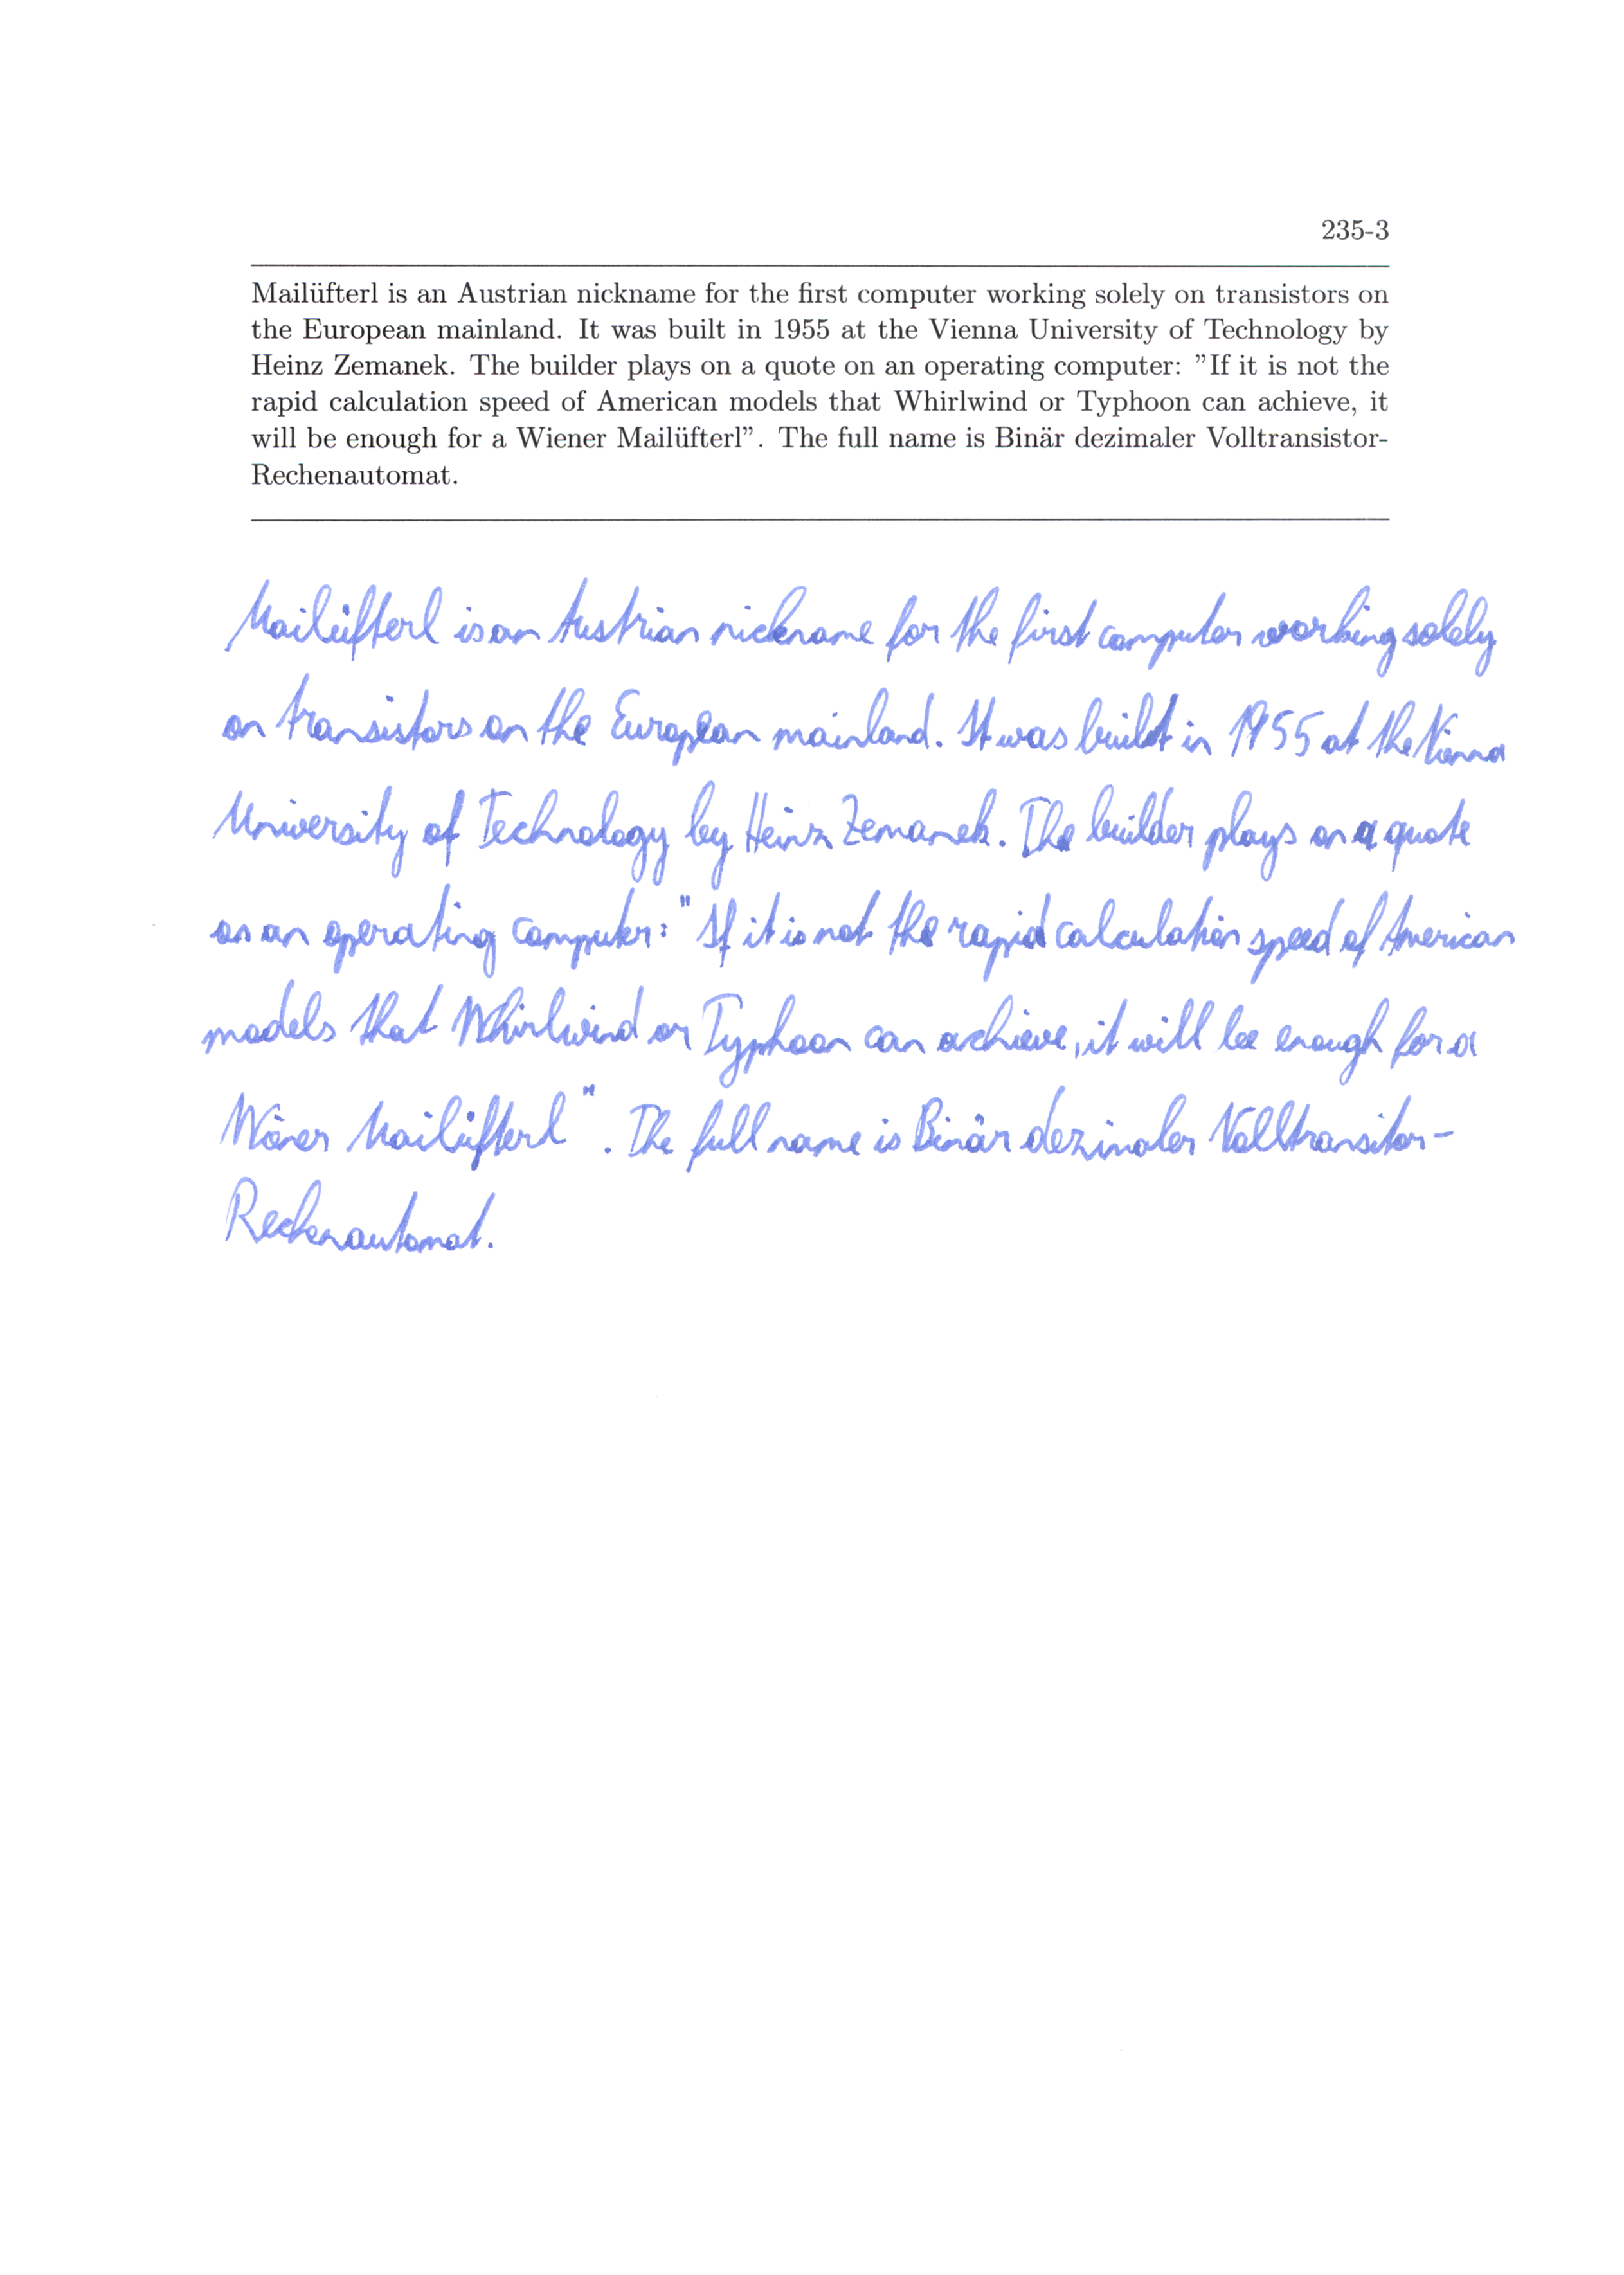 235-3
Mailüfterl is an Austrian nickname for the first computer working solely on transistors on
the European mainland. It was built in 1955 at the Vienna University of Technology by
Heinz Zemanek. The builder plays on a quote on an operating computer: ”If it is not the
rapid calculation speed of American models that Whirlwind or Typhoon can achieve, it
will be enough for a Wiener Mailüfterl”. The full name is Binär dezimaler Volltransistor-
Rechenautomat.
Mailüfterl is an Austrian nickname for the first computer working solely
on transistors on the European mainland. It was built in 1955 at the Vienna
University of Technology by Heinz Zemanek. The builder plays on a quote
on an operating computer: "If it is not the rapid calculation speed of American
models that Whirlwind or Typhoon can achieve, it will be enough for a
Wiener Mailüfterl". The full name is Binär dezimaler Volltransitor-
Rechenautomat.